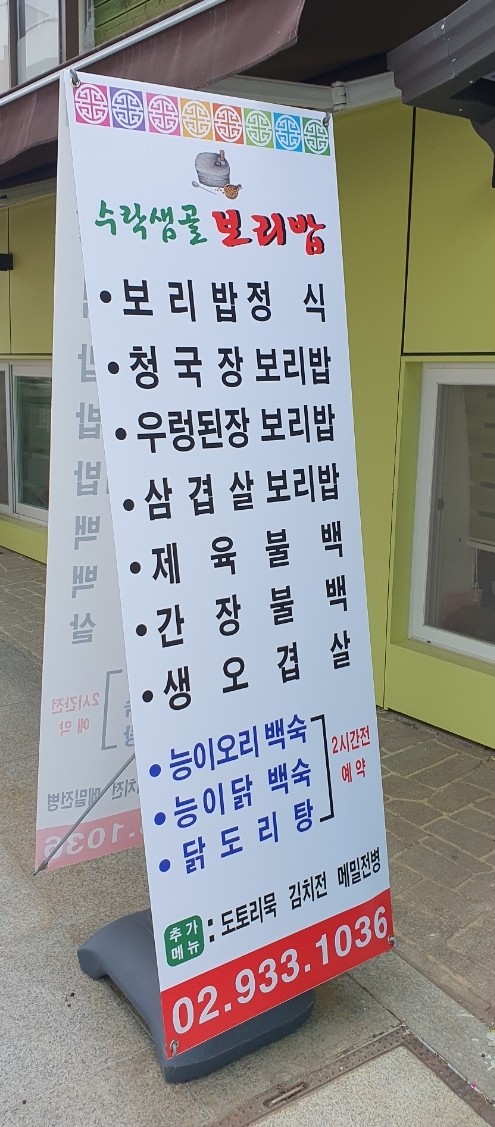 수락샘골 보리밥
• 보리밥정식
• 청국장보리밥
• 우렁된장 보리밥
• 삼겹살보리밥
• 제육불백
• 간장불백
• 생오겹살
• 능이오리 백숙
• 능이닭 백숙
• 닭도리탕
2시간전
예약
추가
메뉴 : 도토리묵 김치전 메밀전병
02.933.1036